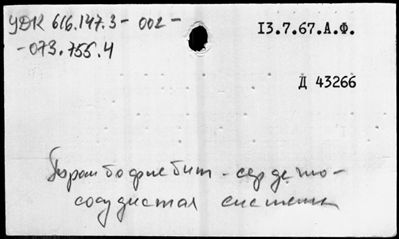 УДК 616.147.3-002-
-073.755.4
13.7.67.А.Ф.
Д 43266
Тромбофлебит - сердечно-
сосудистая система